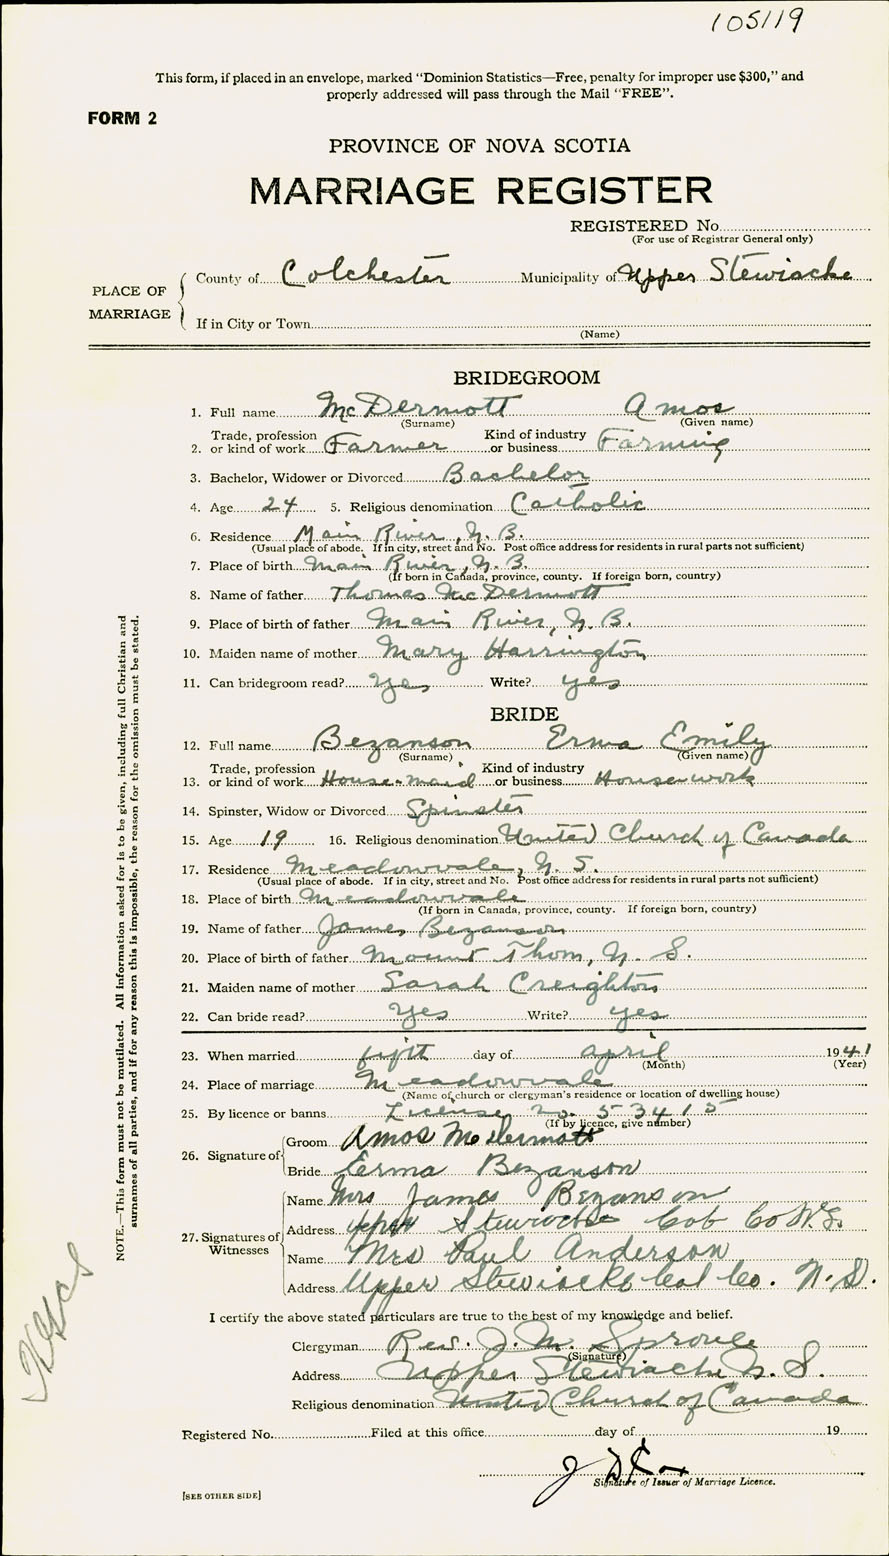 105119
This form, if placed in an envelope, marked "Dominion Statistics—Free, penalty for improper use $300," and
properly addressed will pass through the Mail "FREE".
FORM 2
PROVINCE OF NOVA SCOTIA
MARRIAGE REGISTER
REGISTERED No.
(For use of Registrar General only)
PLACE OF MARRIAGE
County of Colchester Municipality of Upper Stewiacke
If in City or Town
(Name)
BRIDEGROOM
1. Full name McDermott Amos
(Surname) (Given name)
2. Trade, profession or kind of work Farmer Kind of industry or business Farming
3. Bachelor, Widower or Divorced Bachelor
4. Age 24 5. Religious denomination Catholic
6. Residence Main River, N. B.
(Usual place of abode. If in city, street and No. Post office address for residents in rural parts not sufficient)
7. Place of birth Main River, N. B.
(If born in Canada, province, county. If foreign born, country)
8. Name of father Thomas McDermott
9. Place of birth of father Main River, N. B.
10. Maiden name of mother Mary Harrington
11. Can bridegroom read? Yes Write? yes
BRIDE
12. Full name Bezanson Erma Emily
(Surname) (Given name)
13. Trade, profession or kind of work House-maid Kind of industry or business Housework
14. Spinster, Widow or Divorced Spinster
15. Age 19 16. Religious denomination United Church of Canada
17. Residence Meadowvale, N. S.
(Usual place of abode. If in city, street and No. Post office address for residents in rural parts not sufficient)
18. Place of birth Meadowvale
(If born in Canada, province, county. If foreign born, country)
19. Name of father James Bezanson
20. Place of birth of father Mount Thom, N. S.
21. Maiden name of mother Sarah Creighton
22. Can bride read? Yes Write? yes
23. When married fifth day of april 1941
(Month) (Year)
24. Place of marriage Meadowvale
(Name of church or clergyman's residence or location of dwelling house)
25. By licence or banns License no. 53415
(If by licence, give number)
26. Signature of Groom Amos McDermott
Bride Eerma Bezanson
27. Signatures of Witnesses
Name Mrs James Bezanson
Address Upper Stewiacke Col Co N.S.
Name Mrs Paul Anderson
Address Upper Stewiacke Col Co. N.S.
I certify the above stated particulars are true to the best of my knowledge and belief.
Clergyman Rev. J. M. Sproule
(Signature)
Address Upper Stewiacke N. S.
Religious denomination United Church of Canada
Registered No. Filed at this office day of 19
Signature of Issuer of Marriage Licence.
[SEE OTHER SIDE]
NOTE.—This form must not be mutilated. All information asked for is to be given, including full Christian and
surnames of all parties, and if for any reason this is impossible, the reason for the omission must be stated.